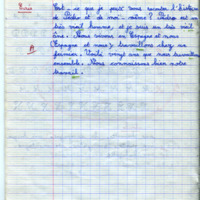 Est-ce que je peux vous raconter l'histoire
de Pedro et de moi-même ? Pedro est un
très vieil homme, et je suis un très vieil
âne. Nous vivons en Espagne et nous
(Espagne et nous) travaillons chez un
fermier. Voilà vingt ans que nous travaillons
ensemble. Nous connaissons bien notre
travail.